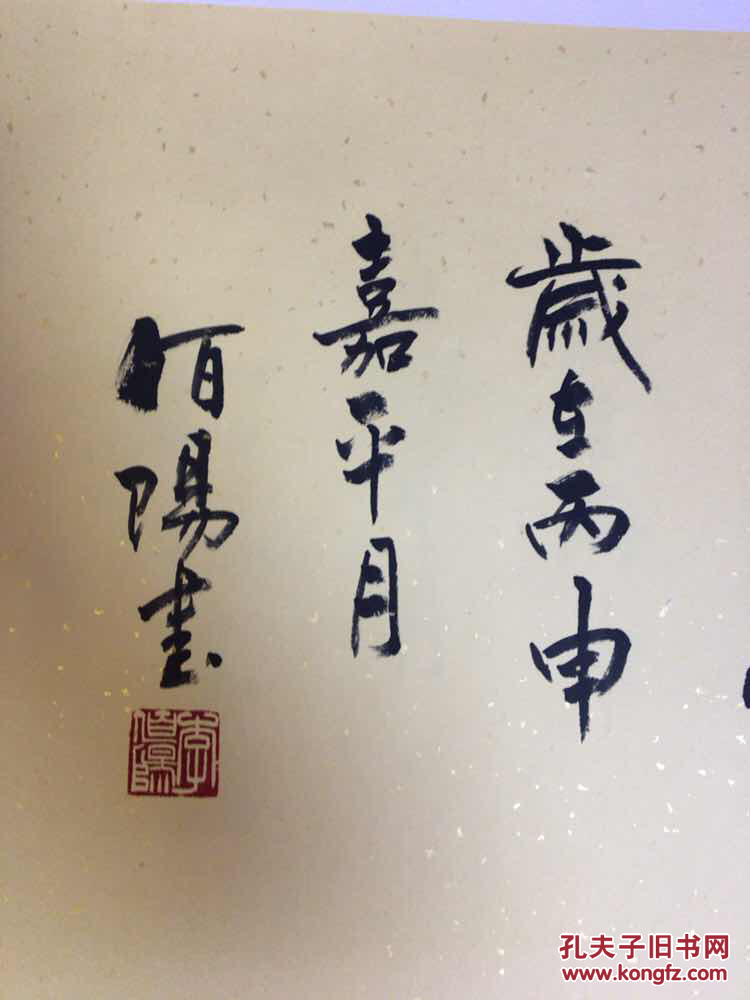 歲在丙申
嘉平月
佰陽書
李佰陽
孔夫子旧书网
www.kongfz.com